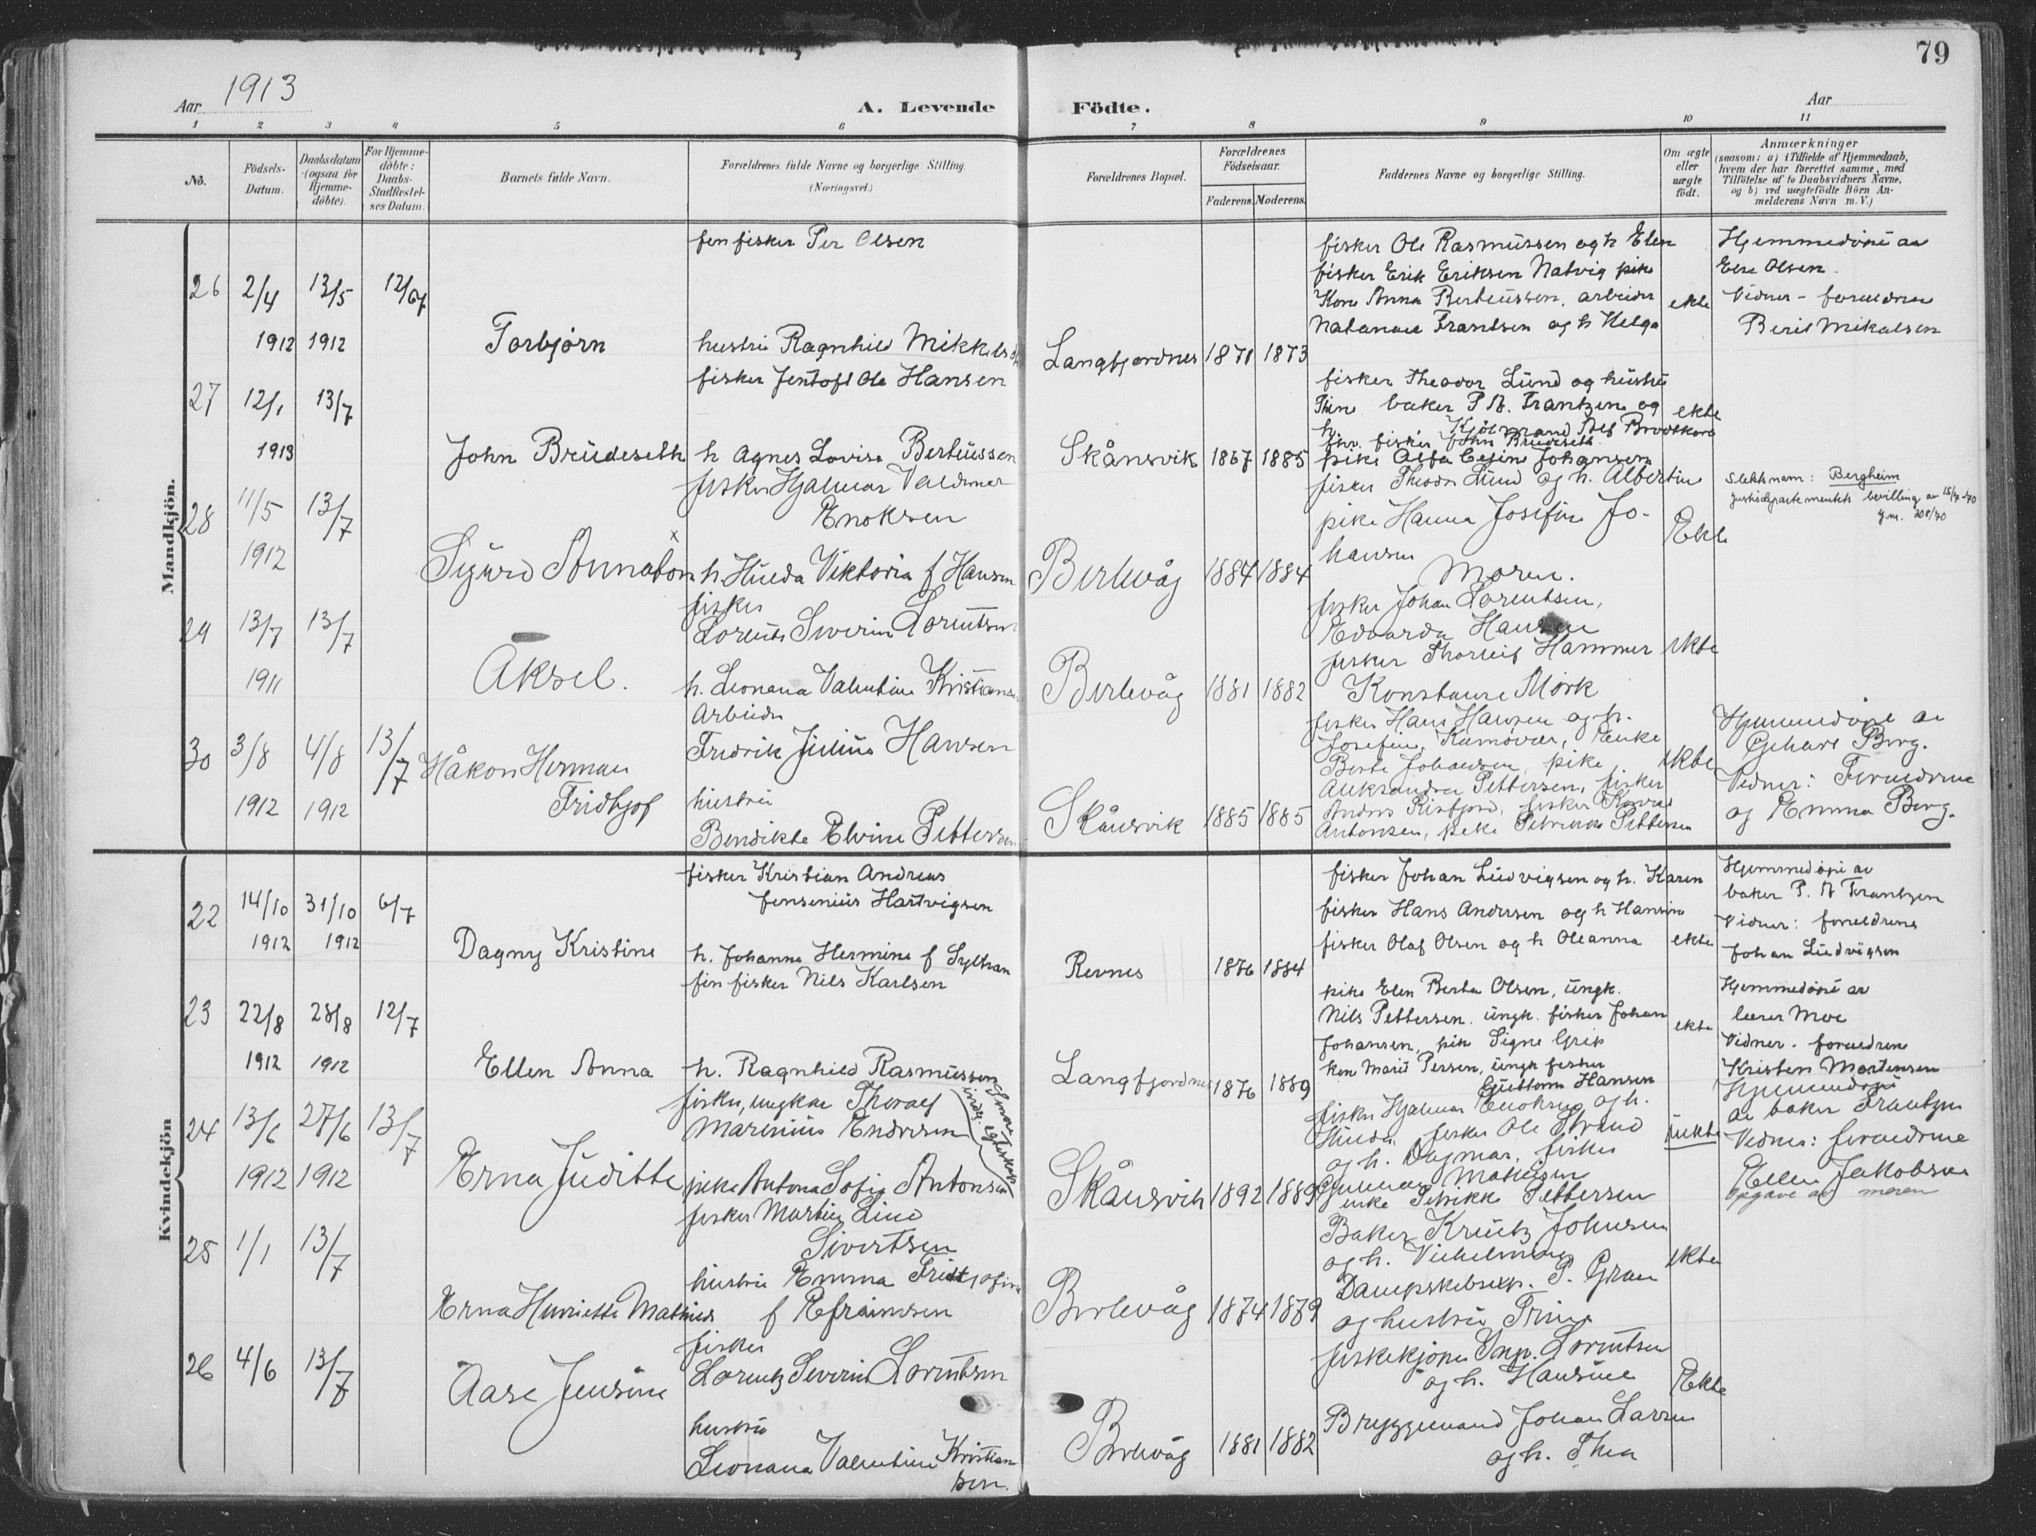 79
Aar 1913
A. Levende
Födte.
Aar
1 2 3 4 5 6 7 8 9 10 11
No.
Födsels-Datum.
Daabsdatum (ogsaa for Hjemme-döbte).
For Hjemme-döbte: Daabs-Stadfestel-ses Datum.
Barnets fulde Navn.
Forældrenes fulde Navne og borgerlige Stilling.
(Næringsvei.)
Forældrenes Bopæl.
Forældrenes Födselsaar.
Faderens. Moderens.
Faddernes Navne og borgerlige Stilling.
Om ægte eller uægte födt.
Anmærkninger
(saasom: a) i Tilfælde af Hjemmedaab,
hvem der har forrettet samme, med
Tilföielse af to Daabsvidners Navne,
og b) ved uægtefödte Börn An-
melderens Navn m. V.)
Mandkjön.
26 2/4 1912 13/5 1912
Torbjørn
fen fisker Per Olsen
hustru Ragnhild Mikkelsd
Langfjordnes 1871 1873
fisker Ole Rasmussen og h Elen
fisker Erik Eriksen Natvig pike
Kone Anna Berteussen, arbeider
Natanael Frantsen og h Helga
ekte
Hjemmedøpt av
Else Olsen.
Vidner - foreldrene
Berit Mikalsen
27 12/1 1913 13/7
John Brudeseth
fisker Jentoft Ole Hansen
h Agnes Lovise Berteussen
Skånsvik 1867 1885
fisker Theodor Lund og hustru
Thine baker P. A. Frantzen og
h.
fhv. fisker John Brudeseth
pike Alfa Johansen
ekte
28 11/5 1912 13/7
Sigurd Annatон
fisker Hjalmar Valdemar
Enoksen
h. Hulda Viktoria f Hansen
Berlevåg 1884 1884
fisker Theodor Lund og h. Albertine
pike Hanna Josefine Jo-
hansen
Moren.
Ekte
Slektsnavn: Bergheim
Justisdepartementets bevilling av 15/7-20
29 13/7 1911 13/7
Aksel.
fisker
Lorents Severin Lorentsen
h. Leonana Valentine Kristians
Berlevåg 1881 1882
fisker Johan Lorentsen,
Edvarda Hansen
fisker Thorleif Hammer
Konstanse Mørk
ekte
30 3/8 1912 4/8 1912 13/7
Håkon Herman
Fridtjof
Arbeider
Fredrik Julius Hansen
hustru
Bendikte Elvine Pettersen
Skånsvik 1885 1885
fisker Hans Hansen og h.
Josefine, Kamøvær, Enke
Berte Johansen, pike
Aleksandra Pettersen, fisker
Anders Risfjord, fisker Konrad
Antonsen, pike Petrikke Pettersen
ekte
Hjemmedøpt av
Gehart Berg.
Vidner: Foreldrene
og Emma Berg.
Kvindekjön
22 14/10 1912 31/10 1912 6/7
Dagny Kristine
fisker Kristian Andreas
Jensenius Hartvigsen
h. Johanne Hermine f Sylthan
Revnes 1876 1884
fisker Johan Ludvigsen og h. Karen
fisker Hans Andersen og h Hansine
fisker Olaf Olsen og h Oleanna
ekte
Hjemmedøpt av
baker P. A Frantzen
Vidner: foreldrene
Johan Ludvigsen
23 22/8 1912 28/8 1912 12/7
Ellen Anna
fen fisker Nils Karlsen
h. Ragnhild Rasmussen
Langfjordnes 1876 1889
pike Elen Berta Olsen, ungk.
Nils Pettersen. ungk. fisker Johan
Johansen, pike Signe Grip
kone Marit Persen, ungk fisker
Guttorm Hansen
ekte
Hjemmedøpt av
lærer Moe
Vidner. foreldrene
Kristen Mortensen
24 13/6 1912 27/6 1912 13/7
Erna Juditte
fisker, ungkar Thoralf
Marinius Endresen
pike Antona Sofie Antonsen
Skånsvik 1892 1889
fisker Hjalmar Enoksen og h.
Hulda, fisker Ole Strand
og h. Dagmar, fisker
Mathisen
enke Petrikke Pettersen
uekte
Hjemmedøpt
av baker Frantzen
Vidner: foreldrene
Ellen Jakobsen
opgave av moren
25 1/1 13/7
Erna Henriette Mathilde
fisker Martin Lind
Sivertsen
hustru Emma Fridtjofine
f Efraimsen
Berlevåg 1874 1879
Baker Kreutz Johnsen
og h. Vilhelmine
Dampskibsexp. P. Gran
og hustru Trine
ekte
26 4/6 13/7
Aase Jensine
fisker
Lorentz Severin Lorentsen
hustru
Leonana Valentine Kristian
sen.
Berlevåg 1881 1882
fiskekjøper Lorentsen
og h. Hansine
Bryggemand Johan Larsen
og h. Thea
Ekte